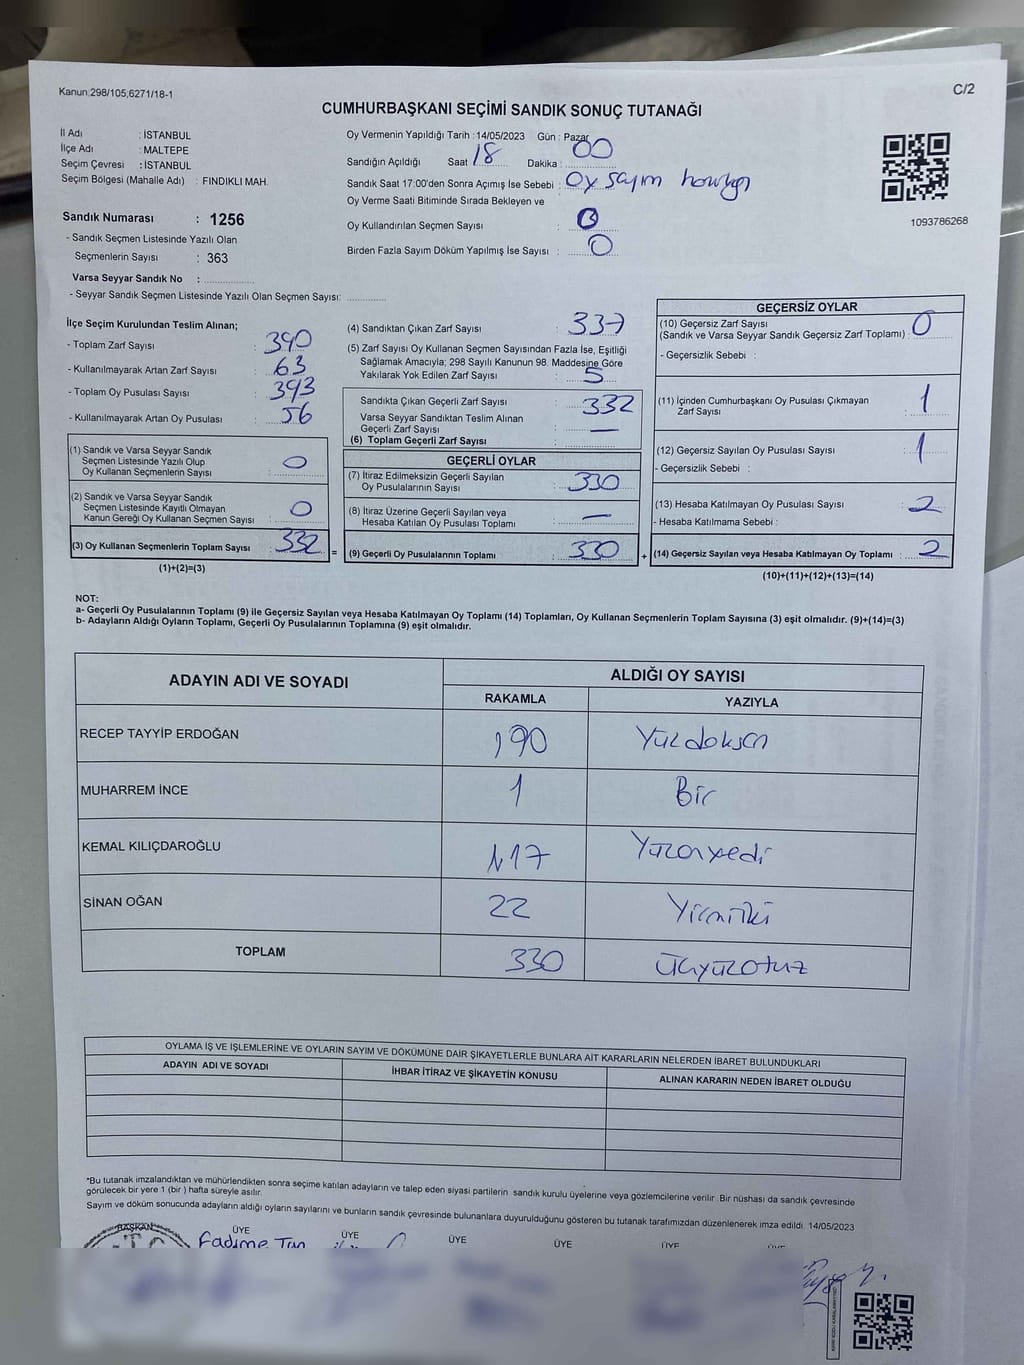 Kanun:298/105,6271/18-1
C/2
CUMHURBAŞKANI SEÇİMİ SANDIK SONUÇ TUTANAĞI
İl Adı : İSTANBUL
İlçe Adı : MALTEPE
Seçim Çevresi : İSTANBUL
Seçim Bölgesi (Mahalle Adı) : FINDIKLI MAH.
Sandık Numarası : 1256
- Sandık Seçmen Listesinde Yazılı Olan
Seçmenlerin Sayısı : 363
Varsa Seyyar Sandık No :
- Seyyar Sandık Seçmen Listesinde Yazılı Olan Seçmen Sayısı:
Oy Vermenin Yapıldığı Tarih :14/05/2023 Gün : Pazar
Sandığın Açıldığı Saat 18 Dakika : 00
Sandık Saat 17:00'den Sonra Açımış İse Sebebi : Oy sayım
Oy Verme Saati Bitiminde Sırada Bekleyen ve
Oy Kullandırılan Seçmen Sayısı : 0
Birden Fazla Sayım Döküm Yapılmış İse Sayısı : 0
1093786268
İlçe Seçim Kurulundan Teslim Alınan;
- Toplam Zarf Sayısı : 390
- Kullanılmayarak Artan Zarf Sayısı : 63
- Toplam Oy Pusulası Sayısı : 393
- Kullanılmayarak Artan Oy Pusulası : 56
(1) Sandık ve Varsa Seyyar Sandık
Seçmen Listesinde Yazılı Olup
Oy Kullanan Seçmenlerin Sayısı : 0
(2) Sandık ve Varsa Seyyar Sandık
Seçmen Listesinde Kayıtlı Olmayan
Kanun Gereği Oy Kullanan Seçmen Sayısı : 0
(3) Oy Kullanan Seçmenlerin Toplam Sayısı : 332 =
(1)+(2)=(3)
(4) Sandıktan Çıkan Zarf Sayısı : 337
(5) Zarf Sayısı Oy Kullanan Seçmen Sayısından Fazla İse, Eşitliği
Sağlamak Amacıyla; 298 Sayılı Kanunun 98. Maddesine Göre
Yakılarak Yok Edilen Zarf Sayısı : 5
Sandıkta Çıkan Geçerli Zarf Sayısı : 332
Varsa Seyyar Sandıktan Teslim Alınan
Geçerli Zarf Sayısı : —
(6) Toplam Geçerli Zarf Sayısı :
GEÇERLİ OYLAR
(7) İtiraz Edilmeksizin Geçerli Sayılan
Oy Pusulalarının Sayısı : 330
(8) İtiraz Üzerine Geçerli Sayılan veya
Hesaba Katılan Oy Pusulası Toplamı : —
(9) Geçerli Oy Pusulalarının Toplamı : 330 +
GEÇERSİZ OYLAR
(10) Geçersiz Zarf Sayısı
(Sandık ve Varsa Seyyar Sandık Geçersiz Zarf Toplamı) : 0
- Geçersizlik Sebebi :
(11) İçinden Cumhurbaşkanı Oy Pusulası Çıkmayan
Zarf Sayısı : 1
(12) Geçersiz Sayılan Oy Pusulası Sayısı : 1
- Geçersizlik Sebebi :
(13) Hesaba Katılmayan Oy Pusulası Sayısı : 2
- Hesaba Katılmama Sebebi :
(14) Geçersiz Sayılan veya Hesaba Katılmayan Oy Toplamı : 2
(10)+(11)+(12)+(13)=(14)
NOT:
a- Geçerli Oy Pusulalarının Toplamı (9) ile Geçersiz Sayılan veya Hesaba Katılmayan Oy Toplamı (14) Toplamları, Oy Kullanan Seçmenlerin Toplam Sayısına (3) eşit olmalıdır. (9)+(14)=(3)
b- Adayların Aldığı Oyların Toplamı, Geçerli Oy Pusulalarının Toplamına (9) eşit olmalıdır.
ADAYIN ADI VE SOYADI
ALDIĞI OY SAYISI
RAKAMLA YAZIYLA
RECEP TAYYİP ERDOĞAN 190 Yüzdoksan
MUHARREM İNCE 1 Bir
KEMAL KILIÇDAROĞLU 117 Yüzonyedi
SİNAN OĞAN 22 Yirmiiki
TOPLAM 330 Üçyüzotuz
OYLAMA İŞ VE İŞLEMLERİNE VE OYLARIN SAYIM VE DÖKÜMÜNE DAİR ŞİKAYETLERLE BUNLARA AİT KARARLARIN NELERDEN İBARET BULUNDUKLARI
ADAYIN ADI VE SOYADI İHBAR İTİRAZ VE ŞİKAYETİN KONUSU ALINAN KARARIN NEDEN İBARET OLDUĞU
*Bu tutanak imzalandıktan ve mühürlendikten sonra seçime katılan adayların ve talep eden siyasi partilerin sandık kurulu üyelerine veya gözlemcilerine verilir. Bir nüshası da sandık çevresinde
görülecek bir yere 1 (bir ) hafta süreyle asılır.
Sayım ve döküm sonucunda adayların aldığı oyların sayılarını ve bunların sandık çevresinde bulunanlara duyurulduğunu gösteren bu tutanak tarafımızdan düzenlenerek imza edildi. 14/05/2023
BAŞKAN ÜYE ÜYE ÜYE ÜYE ÜYE ÜYE
T.C.
Fadime